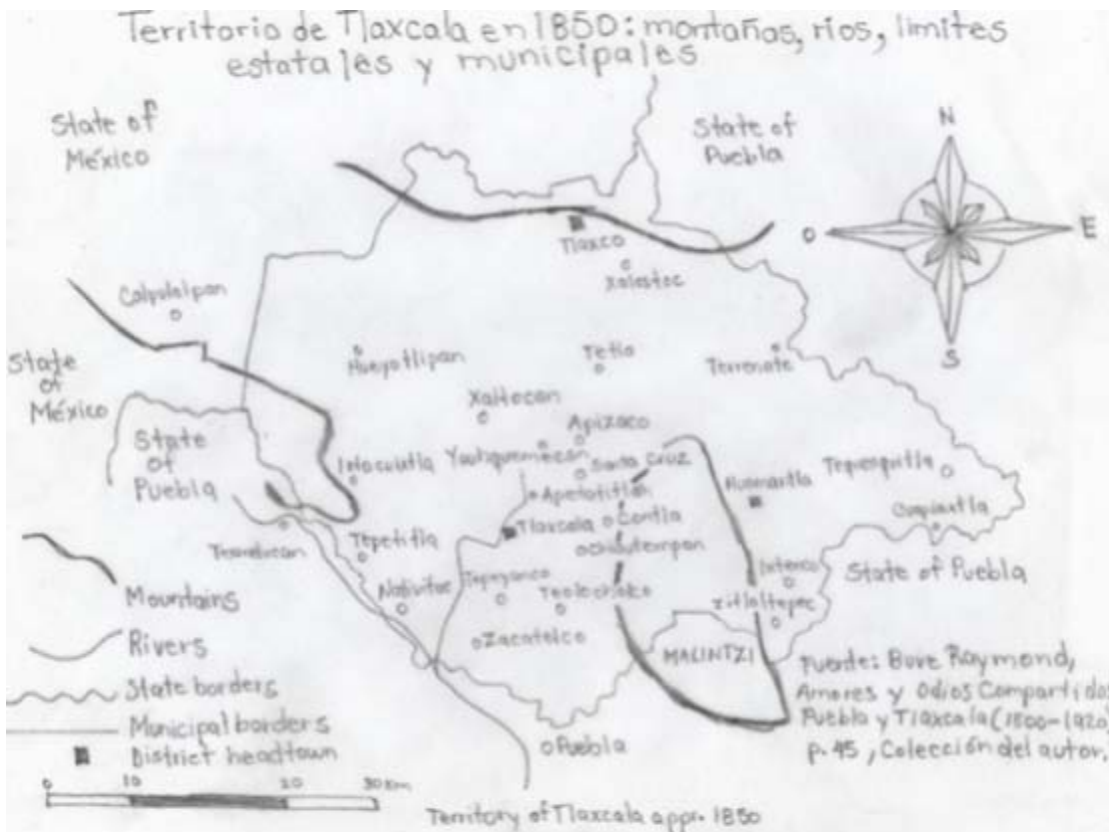 Territorio de Tlaxcala en 1850: montañas, ríos, limites
estatales y municipales
State of
México
State of
Puebla
N
O
E
S
Tlaxco
Xalostoc
Calpulalpan
State
of
México
Hueyotlipan
Tetla
Terrenate
Xaltocan
Apizaco
State
of
Puebla
Ixtacuixtla
Yauhquemecan
Santa Cruz
Huamantla
Apetatitlán
Cuapiaxtla
Tlaxcala
Contla
Chiautempan
Tepetitla
Ixtenco
State of Puebla
Nativitas
Tepeyanco
Teolocholco
Zitlaltepec
Zacatelco
MALINTZI
Mountains
Rivers
State borders
Municipal borders
District headtown
Puebla
Fuente: Buve Raymond,
Amores y Odios Compartido
Puebla y Tlaxcala (1800-1920)
p. 45, Colección del autor.
0 10 20 30 Km
Territory of Tlaxcala appr. 1850